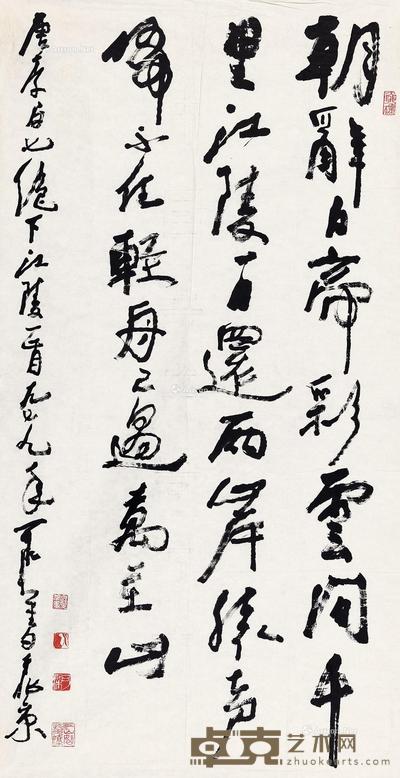 朝辭白帝彩雲間千
里江陵一日還兩岸猿聲
啼不住輕舟已過萬重山
唐李白七絕下江陵一首
卓克艺术网
www.zhuokearts.com